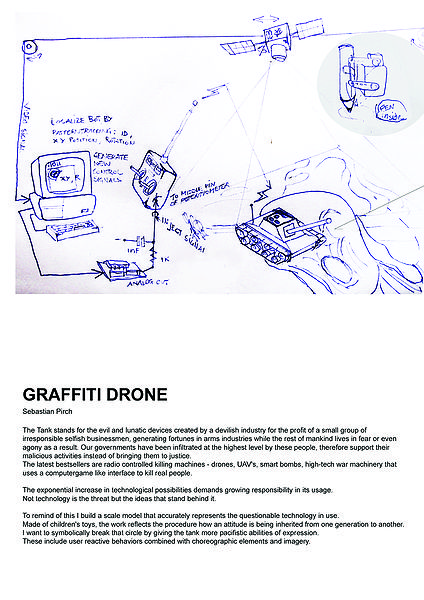 VIDEO SIGNAL
LOCALIZE BOT BY
PATTERNTRACKING: ID,
XY POSITION, ROTATION
GENERATE
NEW
CONTROL
SIGNALS
XY, R
TO MIDDLE PIN
OF POTENTIOMETER
INJECT
SIGNAL
1nF
1K
ANALOG OUT
PEN
inside
GRAFFITI DRONE
Sebastian Pirch
The Tank stands for the evil and lunatic devices created by a devilish industry for the profit of a small group of
irresponsible selfish businessmen, generating fortunes in arms industries while the rest of mankind lives in fear or even
agony as a result. Our governments have been infiltrated at the highest level by these people, therefore support their
malicious activities instead of bringing them to justice.
The latest bestsellers are radio controlled killing machines - drones, UAV's, smart bombs, high-tech war machinery that
uses a computergame like interface to kill real people.
The exponential increase in technological possibilities demands growing responsibility in its usage.
Not technology is the threat but the ideas that stand behind it.
To remind of this I build a scale model that accurately represents the questionable technology in use.
Made of children's toys, the work reflects the procedure how an attitude is being inherited from one generation to another.
I want to symbolically break that circle by giving the tank more pacifistic abilities of expression.
These include user reactive behaviors combined with choreographic elements and imagery.